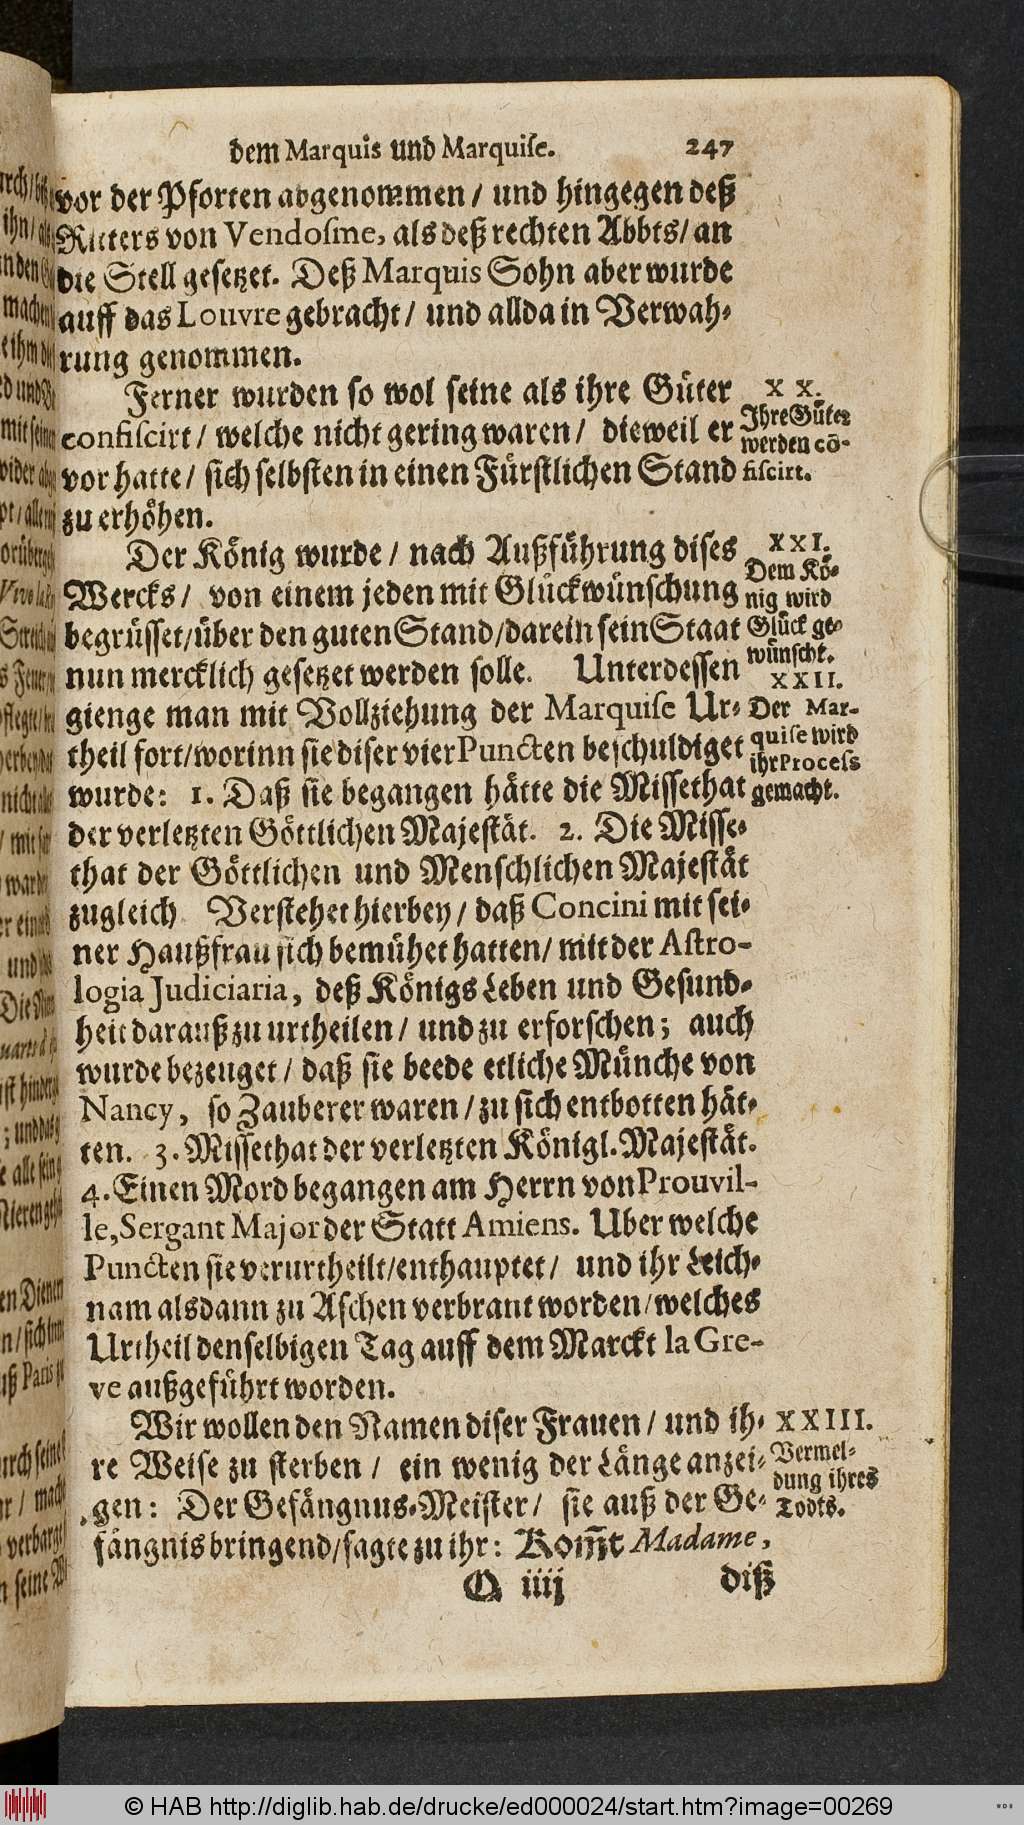 dem Marquis und Marquise. 247
vor der Pforten abgenommen / und hingegen deß
Ritters von Vendosme, als deß rechten Abbts / an
die Stell gesetzet. Deß Marquis Sohn aber wurde
auff das Louvre gebracht / und allda in Verwah-
rung genommen.
Ferner wurden so wol seine als ihre Güter
confiscirt / welche nicht gering waren / dieweil er
vor hatte / sich selbsten in einen Fürstlichen Stand
zu erhöhen.
XX.
Ihre Güter
werden cō-
fiscirt.
Der König wurde / nach Außführung dises
Wercks / von einem jeden mit Glückwünschung
begrüsset / über den guten Stand / darein sein Staat
nun mercklich gesetzet werden solle. Unterdessen
gienge man mit Vollziehung der Marquise Ur-
theil fort / worinn sie diser vier Puncten beschuldiget
wurde: 1. Daß sie begangen hätte die Missethat
der verletzten Göttlichen Majestät. 2. Die Misse-
that der Göttlichen und Menschlichen Majestät
zugleich Verstehet hierbey / daß Concini mit sei-
ner Haußfrau sich bemühet hatten / mit der Astro-
logia Judiciaria, deß Königs Leben und Gesund-
heit darauß zu urtheilen / und zu erforschen; auch
wurde bezeuget / daß sie beede etliche Münche von
Nancy, so Zauberer waren / zu sich entbotten hät-
ten. 3. Missethat der verletzten Königl. Majestät.
4. Einen Mord begangen am Herrn von Prouvil-
le, Sergant Major der Statt Amiens. Uber welche
Puncten sie verurtheilt / enthauptet / und ihr Leich-
nam alsdann zu Aschen verbrant worden / welches
Urtheil denselbigen Tag auff dem Marckt la Gre-
ve außgeführt worden.
XXI.
Dem Kö-
nig wird
Glück ge-
wünscht.
XXII.
Der Mar-
quise wird
ihr Process
gemacht.
Wir wollen den Namen diser Frauen / und ih-
re Weise zu sterben / ein wenig der Länge anzei-
gen: Der Gefängnus-Meister / sie auß der Ge-
fängnis bringend / sagte zu ihr: Kom̄t Madame,
XXIII.
Vermel-
dung ihres
Todts.
Q iiij diß
© HAB http://diglib.hab.de/drucke/ed000024/start.htm?image=00269